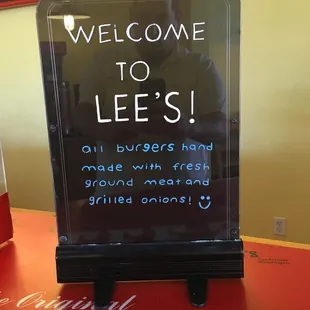 WELCOME
TO
LEE'S!
all burgers hand
made with fresh
ground meat and
grilled onions! ☺
Original